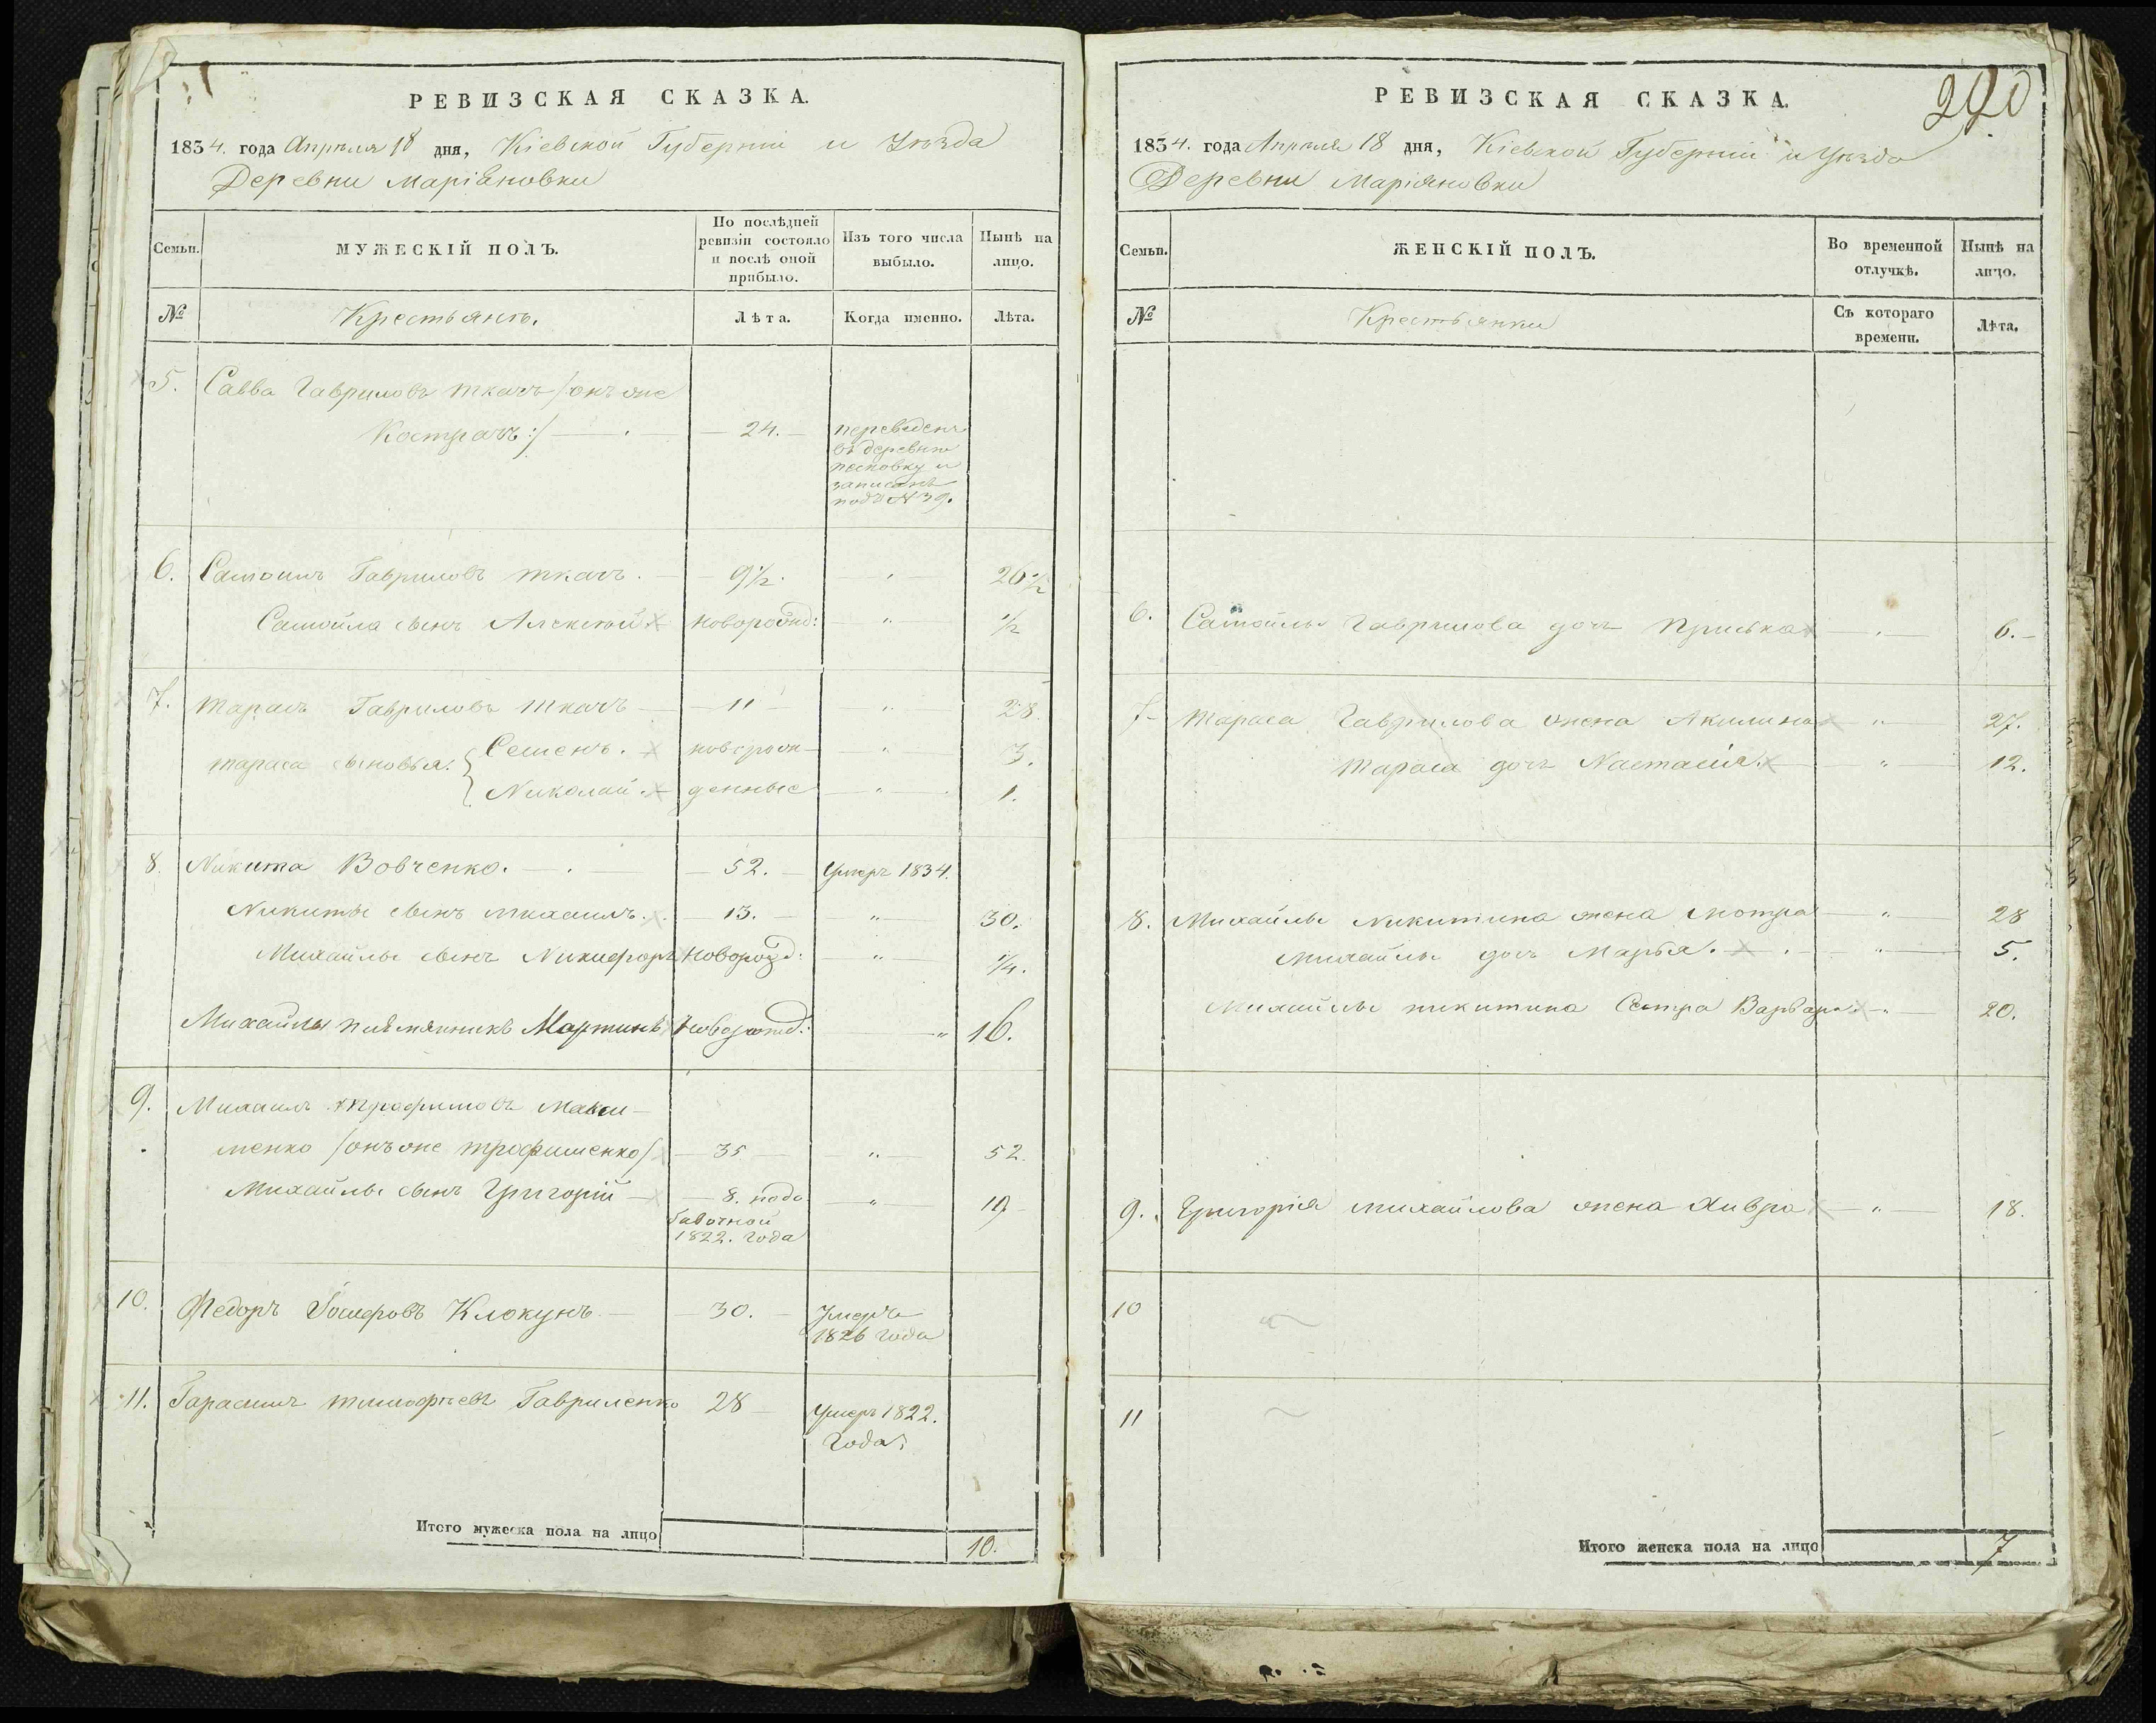 РЕВИЗСКАЯ СКАЗКА.
1834. года Апреля 18 дня, Кіевской Губерніи и Уезда
Деревни Маріяновки
Семьи.
МУЖЕСКІЙ ПОЛЪ.
По послѣдней ревизіи состояло и послѣ оной прибыло.
Изъ того числа выбыло.
Нынѣ на лицо.
№
Крестьянъ.
Лѣта.
Когда именно.
Лѣта.
5. Савва Гавриловъ ткачъ /онъ же
Кострачъ:/ — 24. — переведенъ
въ деревню
и
записанъ
подъ №39.
6. Самоилъ Гавриловъ ткачъ. — 9½. 26½
Самойла сынъ Алексей новорожд: — " — ½
7. Тарасъ Гавриловъ ткачъ — 11 — " 28.
Тараса сыновья. { Семенъ. новорож- — " — 3.
Николай. — денные — " — 1.
8. Никита Вовченко. — 52. — Умеръ 1834.
Никиты сынъ Михаилъ. — 13. — " 30.
Михайлы сынъ Никифоръ новорожд: — " — ¼.
Михайлы племянникъ Мартинъ новорожд: — " 16.
9. Михаилъ Трофимовъ Макси-
менко /онъ же Трофименко/ — 35 — " — 52.
Михайлы сынъ Григорій — 8. подо — " — 19
бавочной
1822. года
10. Федоръ Іосифовъ Клокунъ — 30. — Умеръ
1826 года
11. Гарасимъ Тимофѣевъ Гавриленко 28 — Умеръ 1822.
года.
Итого мужеска пола на лицо 10.
240
РЕВИЗСКАЯ СКАЗКА.
1834. года Апреля 18 дня, Кіевской Губерніи и Уезда
Деревни Маріяновки
Семьи.
ЖЕНСКІЙ ПОЛЪ.
Во временной отлучкѣ.
Нынѣ на лицо.
№
Крестьянки
Съ котораго времени.
Лѣта.
6. Самойлы Гаврилова дочь Приська — " — 6. —
7. Тараса Гаврилова жена Акилина — " — 27.
Тараса дочь Настасія. — " — 12.
8. Михайлы Никитина жена Мотра — " — 28
Михайлы дочь Марья. — " — 5.
Михайлы Никитина Сестра Варвара — " — 20.
9. Григорія Михайлова жена Хивря — " — 18.
10
11
Итого женска пола на лицо 7